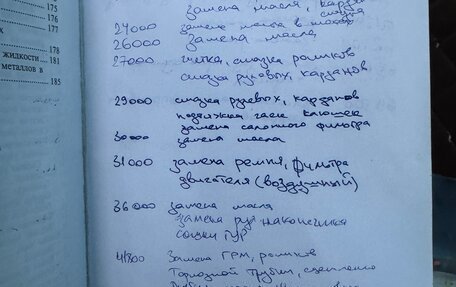 175
176
177
178
жидкости 181
металлов в
185
замена масла,
24000 замена масла в
26000 Замена масла
27000 смазка роликов
смазка рулевых, карданов
29000 смазка рулевых, карданов
подтяжка гаек
замена салонного фильтра
30000 замена масла
31000 замена ремня, фильтра
двигателя (воздушный)
36000 замена масла
замена рул наконечника
сошки ГУР
41800 Замена ГРМ, роликов
Тормозной трубки, сцепления